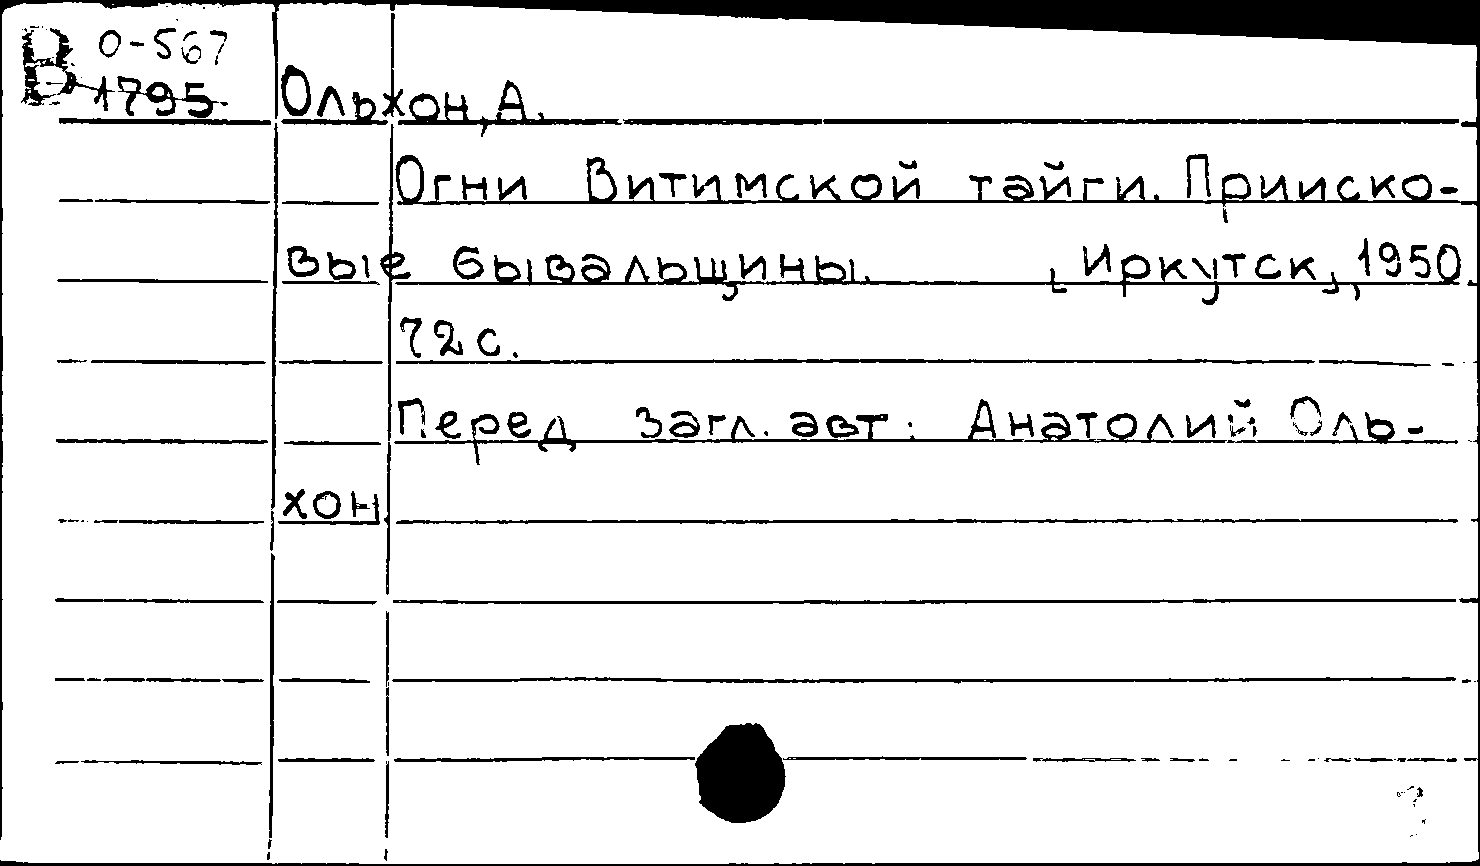 В О-567
1795
Ольхон, А.
Огни Витимской тайги. Прииско-
вые бывальщины. [Иркутск], 1950.
72 с.
Перед загл. авт.: Анатолий Оль-
хон